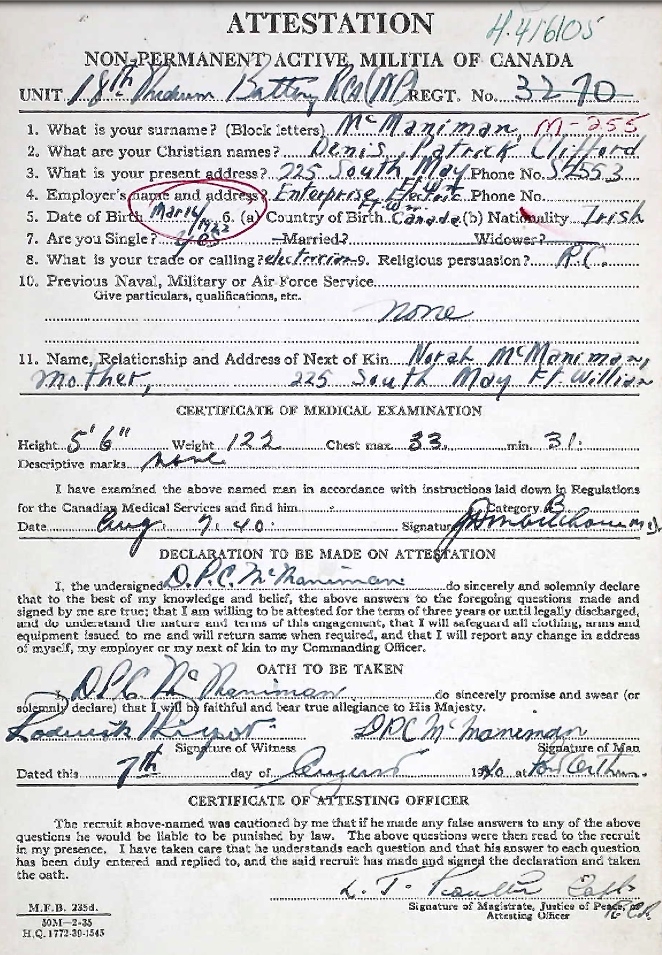 ATTESTATION
H.41605
NON-PERMANENT ACTIVE MILITIA OF CANADA
UNIT 18th Medium Battery RCA (NP) REGT. No. 3270
1. What is your surname? (Block letters) McManiman, M-255
2. What are your Christian names? Denis Patrick Clifford
3. What is your present address? 225 South May Phone No. S2553
Ft. Wm.
4. Employer's name and address? Enterprise Electric Phone No.
Ft. Wm.
5. Date of Birth Mar 16/1922 6. (a) Country of Birth Canada (b) Nationality Irish
7. Are you Single? yes Married? Widower?
8. What is your trade or calling? electrician 9. Religious persuasion? R.C.
10. Previous Naval, Military or Air Force Service
Give particulars, qualifications, etc.
none
11. Name, Relationship and Address of Next of Kin Norah McManiman,
Mother, 225 South May Ft. William
CERTIFICATE OF MEDICAL EXAMINATION
Height 5'6" Weight 122 Chest max. 33 min. 31.
Descriptive marks none
I have examined the above named man in accordance with instructions laid down in Regulations
for the Canadian Medical Services and find him Category B
Date Aug. 7. 40. Signature M.D.
DECLARATION TO BE MADE ON ATTESTATION
I, the undersigned D.P.C. McManiman do sincerely and solemnly declare
that to the best of my knowledge and belief, the above answers to the foregoing questions made and
signed by me are true; that I am willing to be attested for the term of three years or until legally discharged,
and do understand the nature and terms of this engagement, that I will safeguard all clothing, arms and
equipment issued to me and will return same when required, and that I will report any change in address
of myself, my employer or my next of kin to my Commanding Officer.
OATH TO BE TAKEN
I, D.P.C. McManiman do sincerely promise and swear (or
solemnly declare) that I will be faithful and bear true allegiance to His Majesty.
Roderick DPC McManiman
Signature of Witness Signature of Man
Dated this 7th day of August 1940 at Port Arthur.
CERTIFICATE OF ATTESTING OFFICER
The recruit above-named was cautioned by me that if he made any false answers to any of the above
questions he would be liable to be punished by law. The above questions were then read to the recruit
in my presence. I have taken care that he understands each question and that his answer to each question
has been duly entered and replied to, and the said recruit has made and signed the declaration and taken
the oath.
Signature of Magistrate, Justice of Peace, or
Attesting Officer
M.F.B. 235d.
50M-2-35
H.Q. 1772-39-1545